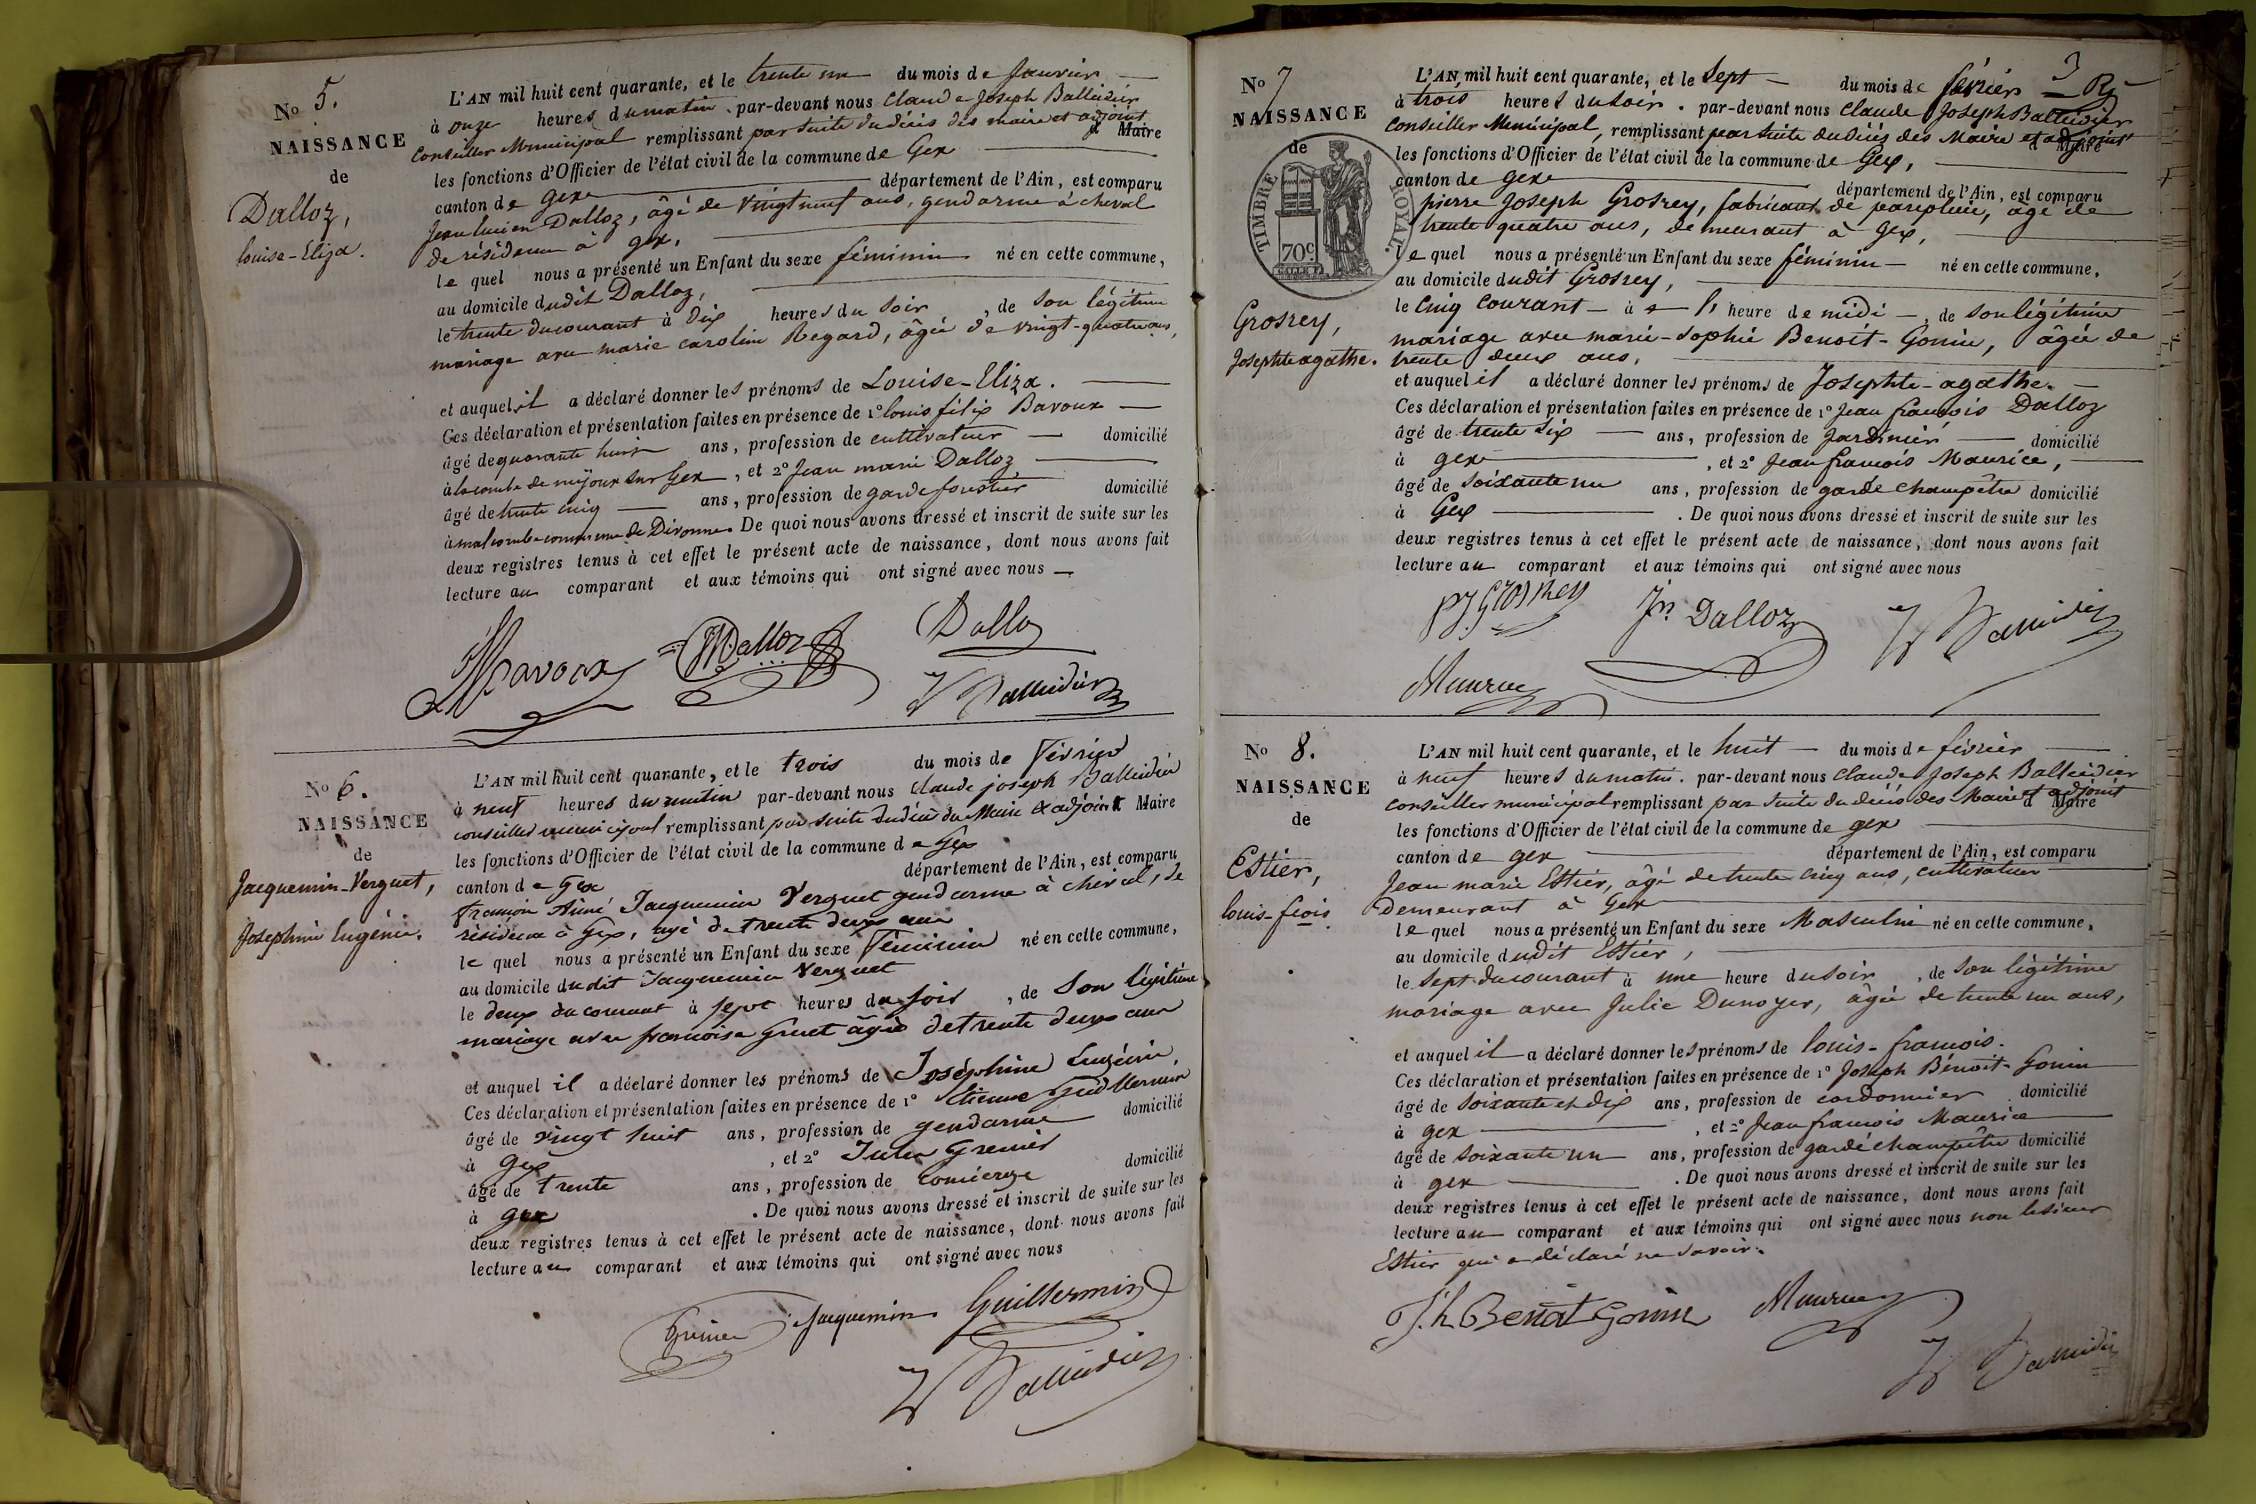 No 5.
NAISSANCE
de
Dalloz,
louise-Eliza.
L'AN mil huit cent quarante, et le trente un du mois de Janvier
à onze heures du matin. par-devant nous Claude Joseph Balleidier
Conseiller Municipal remplissant par suite du décès des maire et adjoint Maire
les fonctions d'Officier de l'état civil de la commune de Gex
canton de gex département de l'Ain, est comparu
Jean lucien Dalloz, âgé de vingt neuf ans, gendarme à cheval
de résidence à gex,
le quel nous a présenté un Enfant du sexe féminin né en cette commune,
au domicile dudit Dalloz,
le trente du courant à dix heures du soir, de son légitime
mariage avec marie caroline Regard, âgée de vingt-quatre ans,
et auquel il a déclaré donner les prénoms de Louise-Eliza.
Ces déclaration et présentation faites en présence de 1º louis félix Bavoux
âgé de quarante huit ans, profession de cultivateur domicilié
à la combe de mijoux sur Gex, et 2º Jean marie Dalloz
âgé de trente cinq ans, profession de garde forestier domicilié
à malcombe commune de Divonne. De quoi nous avons dressé et inscrit de suite sur les
deux registres tenus à cet effet le présent acte de naissance, dont nous avons fait
lecture au comparant et aux témoins qui ont signé avec nous
Bavoux Dalloz Dalloz
Balleidier
No 6.
NAISSANCE
de
Jacquemin-Verguet,
Joséphine Eugénie.
L'AN mil huit cent quarante, et le trois du mois de Février
à neuf heures du matin par-devant nous claude joseph Balleidier
conseiller municipal remplissant par suite du décès du Maire & adjoint Maire
les fonctions d'Officier de l'état civil de la commune de Gex
canton de Gex département de l'Ain, est comparu
françois Aimé Jacquemin Verguet gendarme à cheval, de
résidence à Gex, agé de trente deux ans
le quel nous a présenté un Enfant du sexe Féminin né en cette commune,
au domicile dudit Jacquemin Verguet
le deux du courant à sept heures du soir, de son légitime
mariage avec françoise Gruet âgée de trente deux ans
et auquel il a déclaré donner les prénoms de Joséphine Eugénie.
Ces déclaration et présentation faites en présence de 1º Etienne Guillermin
âgé de vingt huit ans, profession de gendarme domicilié
à gex, et 2º Jules Grenier
âgé de trente ans, profession de concierge domicilié
à gex. De quoi nous avons dressé et inscrit de suite sur les
deux registres tenus à cet effet le présent acte de naissance, dont nous avons fait
lecture au comparant et aux témoins qui ont signé avec nous
Grenier Jacquemin Guillermin
Balleidier
3
No 7
NAISSANCE
de
TIMBRE ROYAL.
70 c
Grosrey,
Josephte agathe.
L'AN mil huit cent quarante, et le Sept du mois de février
à trois heures du soir. par-devant nous Claude Joseph Balleidier
Conseiller Municipal, remplissant par suite du décès des Maire et adjoint Maire
les fonctions d'Officier de l'état civil de la commune de Gex,
canton de gex département de l'Ain, est comparu
pierre Joseph Grosrey, fabricant de parapluie, âgé de
trente quatre ans, demeurant à Gex,
le quel nous a présenté un Enfant du sexe féminin né en cette commune,
au domicile dudit Grosrey,
le cinq courant à l' heure de midi, de son légitime
mariage avec marie-sophie Benoit-Gonin, âgée de
trente deux ans,
et auquel il a déclaré donner les prénoms de Josephte-agathe.
Ces déclaration et présentation faites en présence de 1º Jean françois Dalloz
âgé de trente six ans, profession de Jardinier domicilié
à gex, et 2º Jean françois Maurice,
âgé de soixante un ans, profession de garde champêtre domicilié
à Gex. De quoi nous avons dressé et inscrit de suite sur les
deux registres tenus à cet effet le présent acte de naissance, dont nous avons fait
lecture au comparant et aux témoins qui ont signé avec nous
PJ. Grosrey Jn Dalloz Balleidier
Maurice
No 8.
NAISSANCE
de
Estier,
louis-fçois.
L'AN mil huit cent quarante, et le huit du mois de février
à neuf heures du matin. par-devant nous Claude Joseph Balleidier
conseiller municipal remplissant par suite du décès des Maire et adjoint Maire
les fonctions d'Officier de l'état civil de la commune de gex
canton de gex département de l'Ain, est comparu
Jean marie Estier, âgé de trente cinq ans, cultivateur
demeurant à Gex
le quel nous a présenté un Enfant du sexe Masculin né en cette commune,
au domicile dudit Estier,
le sept du courant à une heure du soir, de son légitime
mariage avec Julie Dunoyer, âgée de trente un ans,
et auquel il a déclaré donner les prénoms de louis-françois.
Ces déclaration et présentation faites en présence de 1º Joseph Bénoit-Gonin
âgé de soixante et dix ans, profession de cordonnier domicilié
à gex, et 2º Jean françois Maurice
âgé de soixante un ans, profession de garde champêtre domicilié
à gex. De quoi nous avons dressé et inscrit de suite sur les
deux registres tenus à cet effet le présent acte de naissance, dont nous avons fait
lecture au comparant et aux témoins qui ont signé avec nous non le sieur
Estier qui a déclaré ne savoir.
J.h Benoit Gonin Maurice
Balleidier